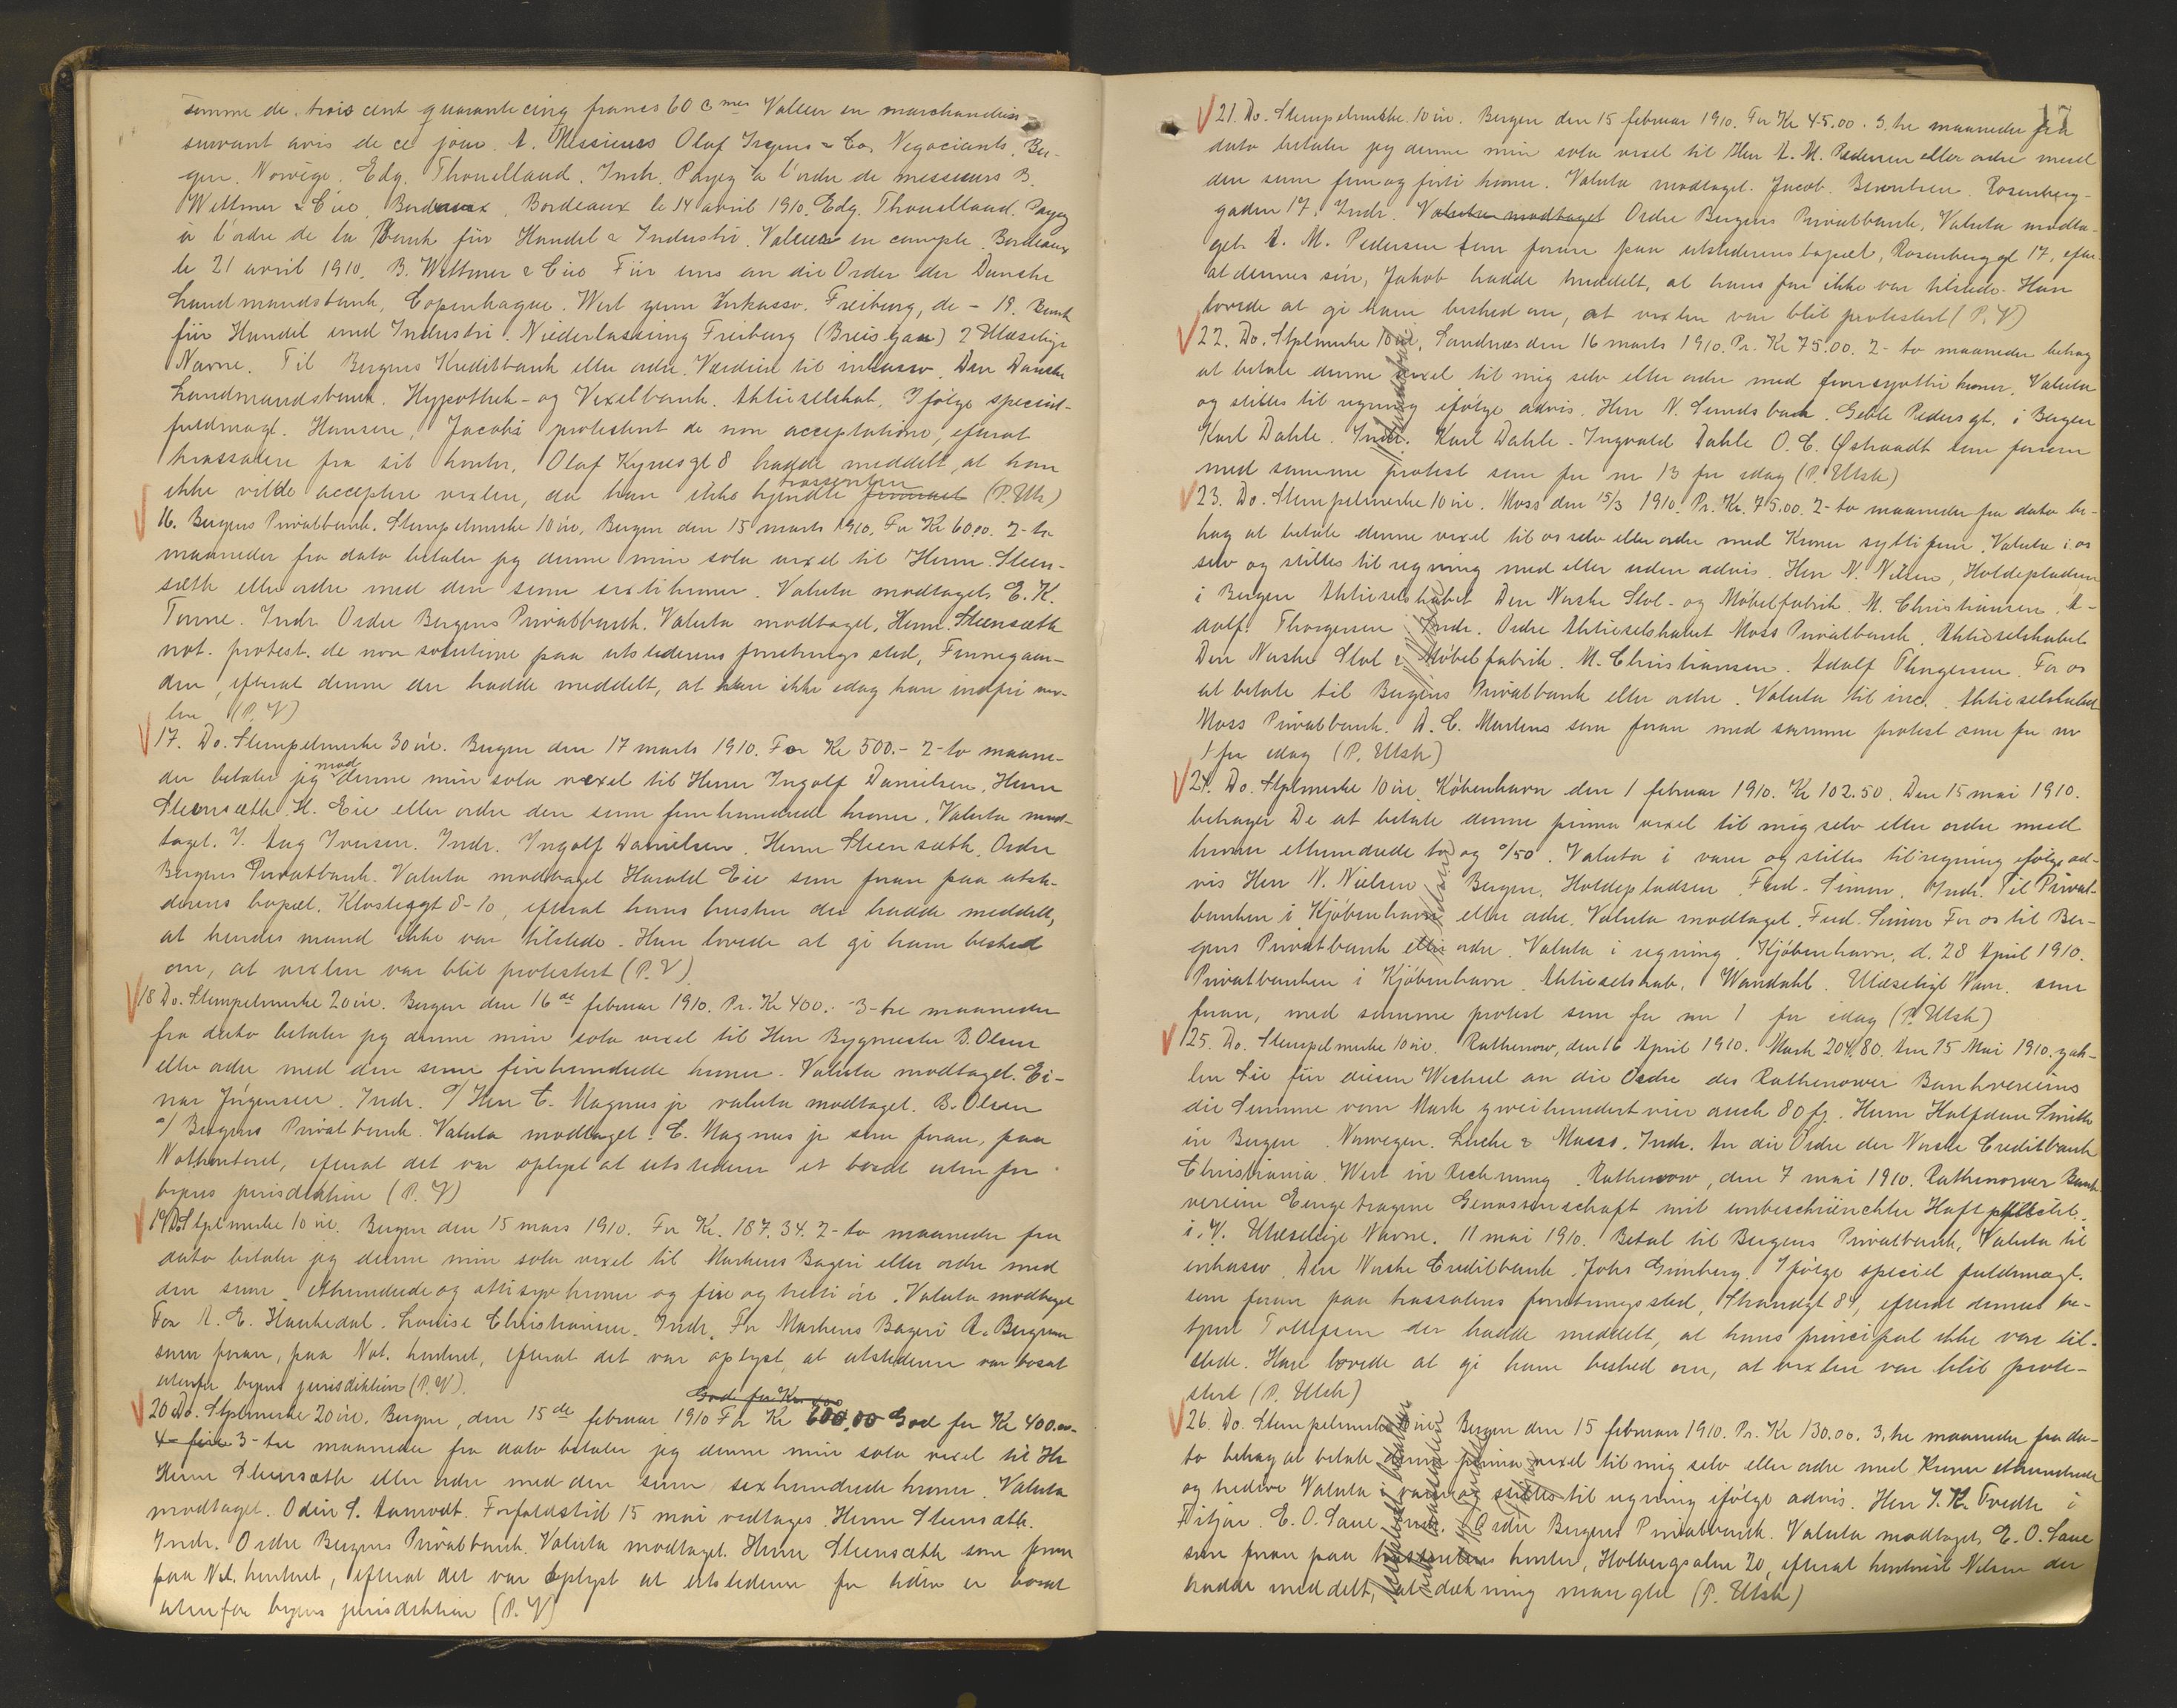 somme de trois cent quarante cinq francs 60 cmes Valeur en marchandises
suivant avis de ce jour. A. Messieurs Olaf Irgens & Co, Negociants, Ber-
gen. Norvège. Edg. Thouelland. Indr. Payez à l'ordre de messieurs B.
Wettmer & Cie, Bordeaux, Bordeaux le 14 avril 1910. Edg. Thouelland. Payez
à l'ordre de la Bank für Handel & Industri. Valeur en compte. Bordeaux
le 21 avril 1910. B. Wettmer & Cie Für uns an die Order der Danske
Landmandsbank, Copenhague. Wert zum Inkasso. Freiburg, de - 19. Bank
für Handel und Industri. Niederlassung Freiburg (Breisgau) 2 Ulæselige
Navne. Til Bergens Kreditbank eller ordre. Værdien til incasso. Den Danske
Landmandsbank. Hypothek- og Vexelbank. Aktieselskab. Ifølge special-
fuldmagt. Hansen, Jacobi protestert de non acceptatione, efterat
trassaten fra sit kontor, Olaf Kyrresgt 8 hadde meddelt, at han
ikke vilde acceptere vexlen, da han ikke kjendte firmaet trassenten (P. Uts)
16. Bergens Privatbank. Stempelmerke 10 øre, Bergen den 15 marts 1910. For Kr 60.00. 2-to
maaneder fra dato betaler jeg denne min sola vexel til Herm. Steen-
sæth eller ordre med den sum sexti kroner. Valuta modtaget, E. K.
Tonne. Indr. Ordre Bergens Privatbank. Valuta modtaget, Herm. Steensæth
not. protest. de non solutione paa utstederens forretnings sted, Finnegaar-
den, efterat denne der hadde meddelt, at han ikke idag kan indfri vex-
len (P. V)
17. Do. Stempelmerke 30 øre. Bergen den 17 marts 1910. For Kr 500.- 2-to maane-
der betaler jeg mod denne min sola vexel til Herrer Ingolf Danielsen, Herm
Steensæth, H. Eie eller ordre den sum femhundrede kroner. Valuta mod-
taget. J. Aug Iversen. Indr. Ingolf Danielsen. Herm Steensæth, Ordre
Bergens Privatbank. Valuta modtaget Harald Eie som foran paa utste-
derens bopæl. Klostergt 8-10, efterat hans hustru der hadde meddelt,
at hendes mand ikke var tilstede. Hun lovede at gi ham besked
om, at vexlen var blit protestert (P. V).
18 Do. Stempelmerke 20 øre. Bergen den 16de februar 1910. Pr. Kr 400.- 3-tre maaneder
fra dato betaler jeg denne min sola vexel til Herr Bygmester B. Olsen
eller ordre med den sum firehundrede kroner. Valuta modtaget. Ei-
nar Jørgensen. Indr. o/ Herr C. Magnus jr valuta modtaget. B. Olsen
o/ Bergens Privatbank. Valuta modtaget. C. Magnus jr som foran, paa
Notkontoret, efterat det var oplyst at utstederen er bosat utenfor
byens jurisdiktion (P. V)
19 Do. Stplmerke 10 øre. Bergen den 15 mars 1910. For Kr. 187.34. 2-to maaneder fra
dato betaler jeg denne min sola vexel til Markens Bageri eller ordre med
den sum etthundrede og ottisyv kroner og fire og tretti øre. Valuta modtaget
For A. E. Haukedal. Louise Christiansen. Indr. For Markens Bageri A. Bergman
som foran, paa Not. kontoret, efterat det var oplyst, at utstederen var bosat
utenfor byens jurisdiktion (P. V).
God for Kr. 400
20 Do. Stplmerke 20 øre. Bergen, den 15de februar 1910 For Kr 600.00 God for Kr 400.00-
4-fire 3-tre maaneder fra dato betaler jeg denne min sola vexel til Hr
Herm Steensæth eller ordre med den sum sexhundrede kroner. Valuta
modtaget. Odin S. Aamodt. Forfaldstid 15 mai vedtages. Herm Steensæth.
Indr. Ordre Bergens Privatbank. Valuta modtaget. Herm Steensæth som foran
paa Not. kontoret, efterat det var oplyst at utstederen for tiden er bosat
utenfor byens jurisdiktion (P. V)
17
21. Do. Stempelmerke 10 øre. Bergen den 15 februar 1910. For Kr 45.00. 3. tre maaneder fra
dato betaler jeg denne min sola vexel til Herr A. M. Pedersen eller ordre med
den sum fem og førti kroner. Valuta modtaget. Jacob. Berentsen. Rosenberg-
gaden 17. Indr. Valuta modtaget Ordre Bergens Privatbank, Valuta modta-
get. A. M. Pedersen som foran paa utstederens bopæl, Rosenberggt 17, efter-
at dennes søn, Jakob hadde meddelt, at hans far ikke var tilstede. Han
lovede at gi ham besked om, at vexlen var blit protestert (P. V)
22. Do. Stplmerke 10 øre, Sandnes den 16 marts 1910. Pr. Kr 75.00. 2- to maaneder behag
at betale denne vexel til mig selv eller ordre med femsyvtti kroner. Valuta
og stilles til regning ifølge advis. Herr N. Sundsbak. Gable Pedersgt. i Bergen
Karl Dahle. Indr. Karl Dahle. Ingvald Dahle O. C. Østraadt som foran
med samme protest som for nr 13 for idag (P. Utsk)
23. Do. Stempelmerke 10 øre. Moss den 15/3 1910. Pr. Kr. 75.00. 2- to maaneder fra dato be-
hag at betale denne vexel til os selv eller ordre med Kroner sytti fem. Valuta i os
selv og stilles til regning med eller uden advis. Herr N. Nilsen, Holdepladsen
i Bergen Aktieselskabet Den Norske Stol- og Møbelfabrik. M. Christiansen. A-
dolf. Thorgersen Indr. Ordre Aktieselskabet Moss Privatbank. Aktieselskabet
Den Norske Stol & Møbelfabrik. M. Christiansen. Adolf Thorgersen. For os
at betale til Bergens Privatbank eller ordre. Valuta til inc. Aktieselskabet
Moss Privatbank. A. C. Martens som foran med samme protest som for nr
1 for idag (P. Utsk)
24. Do. Stplmerke 10 øre. København den 1 februar 1910. Kr 102.50. Den 15 mai 1910.
behager De at betale denne prima vexel til mig selv eller ordre med
kroner etthundrede to og o/50. Valuta i varer og stilles til regning ifølge ad-
vis Herr N. Nielsen Bergen. Holdepladsen. Ferd. Simon. Indr. Til Privat-
banken i Kjøbenhavn eller ordre. Valuta modtaget. Ferd. Simon For os til Ber-
gens Privatbank eller ordre. Valuta i regning. Kjøbenhavn, d. 28 April 1910.
Privatbanken i Kjøbenhavn. Aktieselskab. Wandahl. Ulæseligt Navn. som
foran, med samme protest som for nr 1 for idag (P. Utsk)
25. Do. Stempelmerke 10 øre. Rathenow, den 16 April 1910. Mark 204.80. Am 15 Mai 1910. zah-
len Sie für diesen Wechsel an die Ordre des Rathenower Bankvereins
die Summe von Mark zweihundert vier auch 80 fg. Herrn Halfdan Smith
in Bergen. Norwegen. Luche & Mass. Indr. An die Ordre der Norske Creditbank
Christiania. Wert in Rechnung. Rathenow, den 7 mai 1910. Rathenower Bank-
verein Eingetragene Genossenschaft mit unbeschränkter Haftpflicht.
i. V. Ulæselige Navne. 11 mai 1910. Betal til Bergens Privatbank, Valuta til
inkasso. Den Norske Creditbank. Johs Grønberg. Ifølge speciel fuldmagt.
som foran paa trassatens forretningssted, Strandgt 84, efterat dennes be-
tjent Tollefsen der hadde meddelt, at hans principal ikke var til-
stede. Han lovede at gi ham besked om, at vexlen var blit prote-
stert (P. Utsk)
26. Do. Stempelmerke 10 øre Bergen den 15 februar 1910. Pr. Kr 130.00. 3. tre maaneder fra da-
to behag at betale denne prima vexel til mig selv eller ordre med Kroner etthundrede
og tredive Valuta i varer og stilles til regning ifølge advis. Herr J. K. Tvedte i
Fitjar. E. O. Saue Indr. Ordre Bergens Privatbank. Valuta modtaget, E. O. Saue
som foran paa trassentens kontor, Holbergsalm 20, efterat kontorist Nilsen der
hadde meddelt, at dækning mangler (P. Utsk)